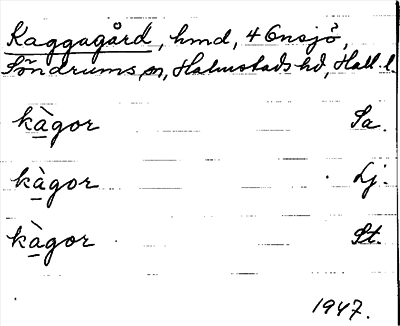 Kaggagård, hmd, 4 Ensjö,
Söndrums sn, Halmstads hd, Hall. l.
kàgor Sa.
kàgor Lj.
kàgor St.
1947.